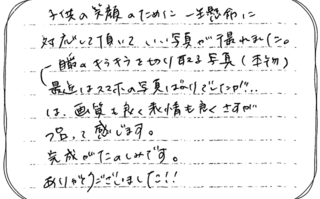 子供の笑顔のために一生懸命に
対応して頂いていい写真が撮れました。
一瞬のキラキラを切り取る写真(本物)
最近はスマホの写真ばかりでしたが、
は、画質も良く表情も良くさすが
プロって感じます。
完成がたのしみです。
ありがとうございました!!